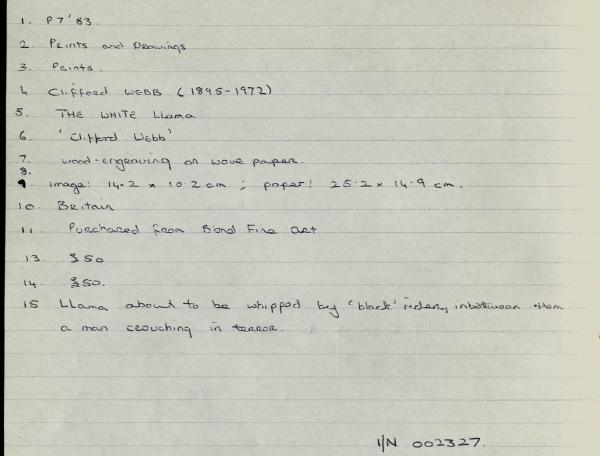 1. P7'83.
2. Prints and Drawings
3. Prints.
4 Clifford WEBB (1895-1972)
5. THE WHITE Llama
6. 'Clifford Webb'
7. wood-engraving on wove paper.
8.
9 image: 14.2 x 10.2 cm ; paper: 25.2 x 14.9 cm.
10 Britain
11 Purchased from Bond Fine Art
13. $50
14. $50.
15 Llama about to be whipped by 'black' rider, inbetween them
a man crouching in terror.
I/N 002327.